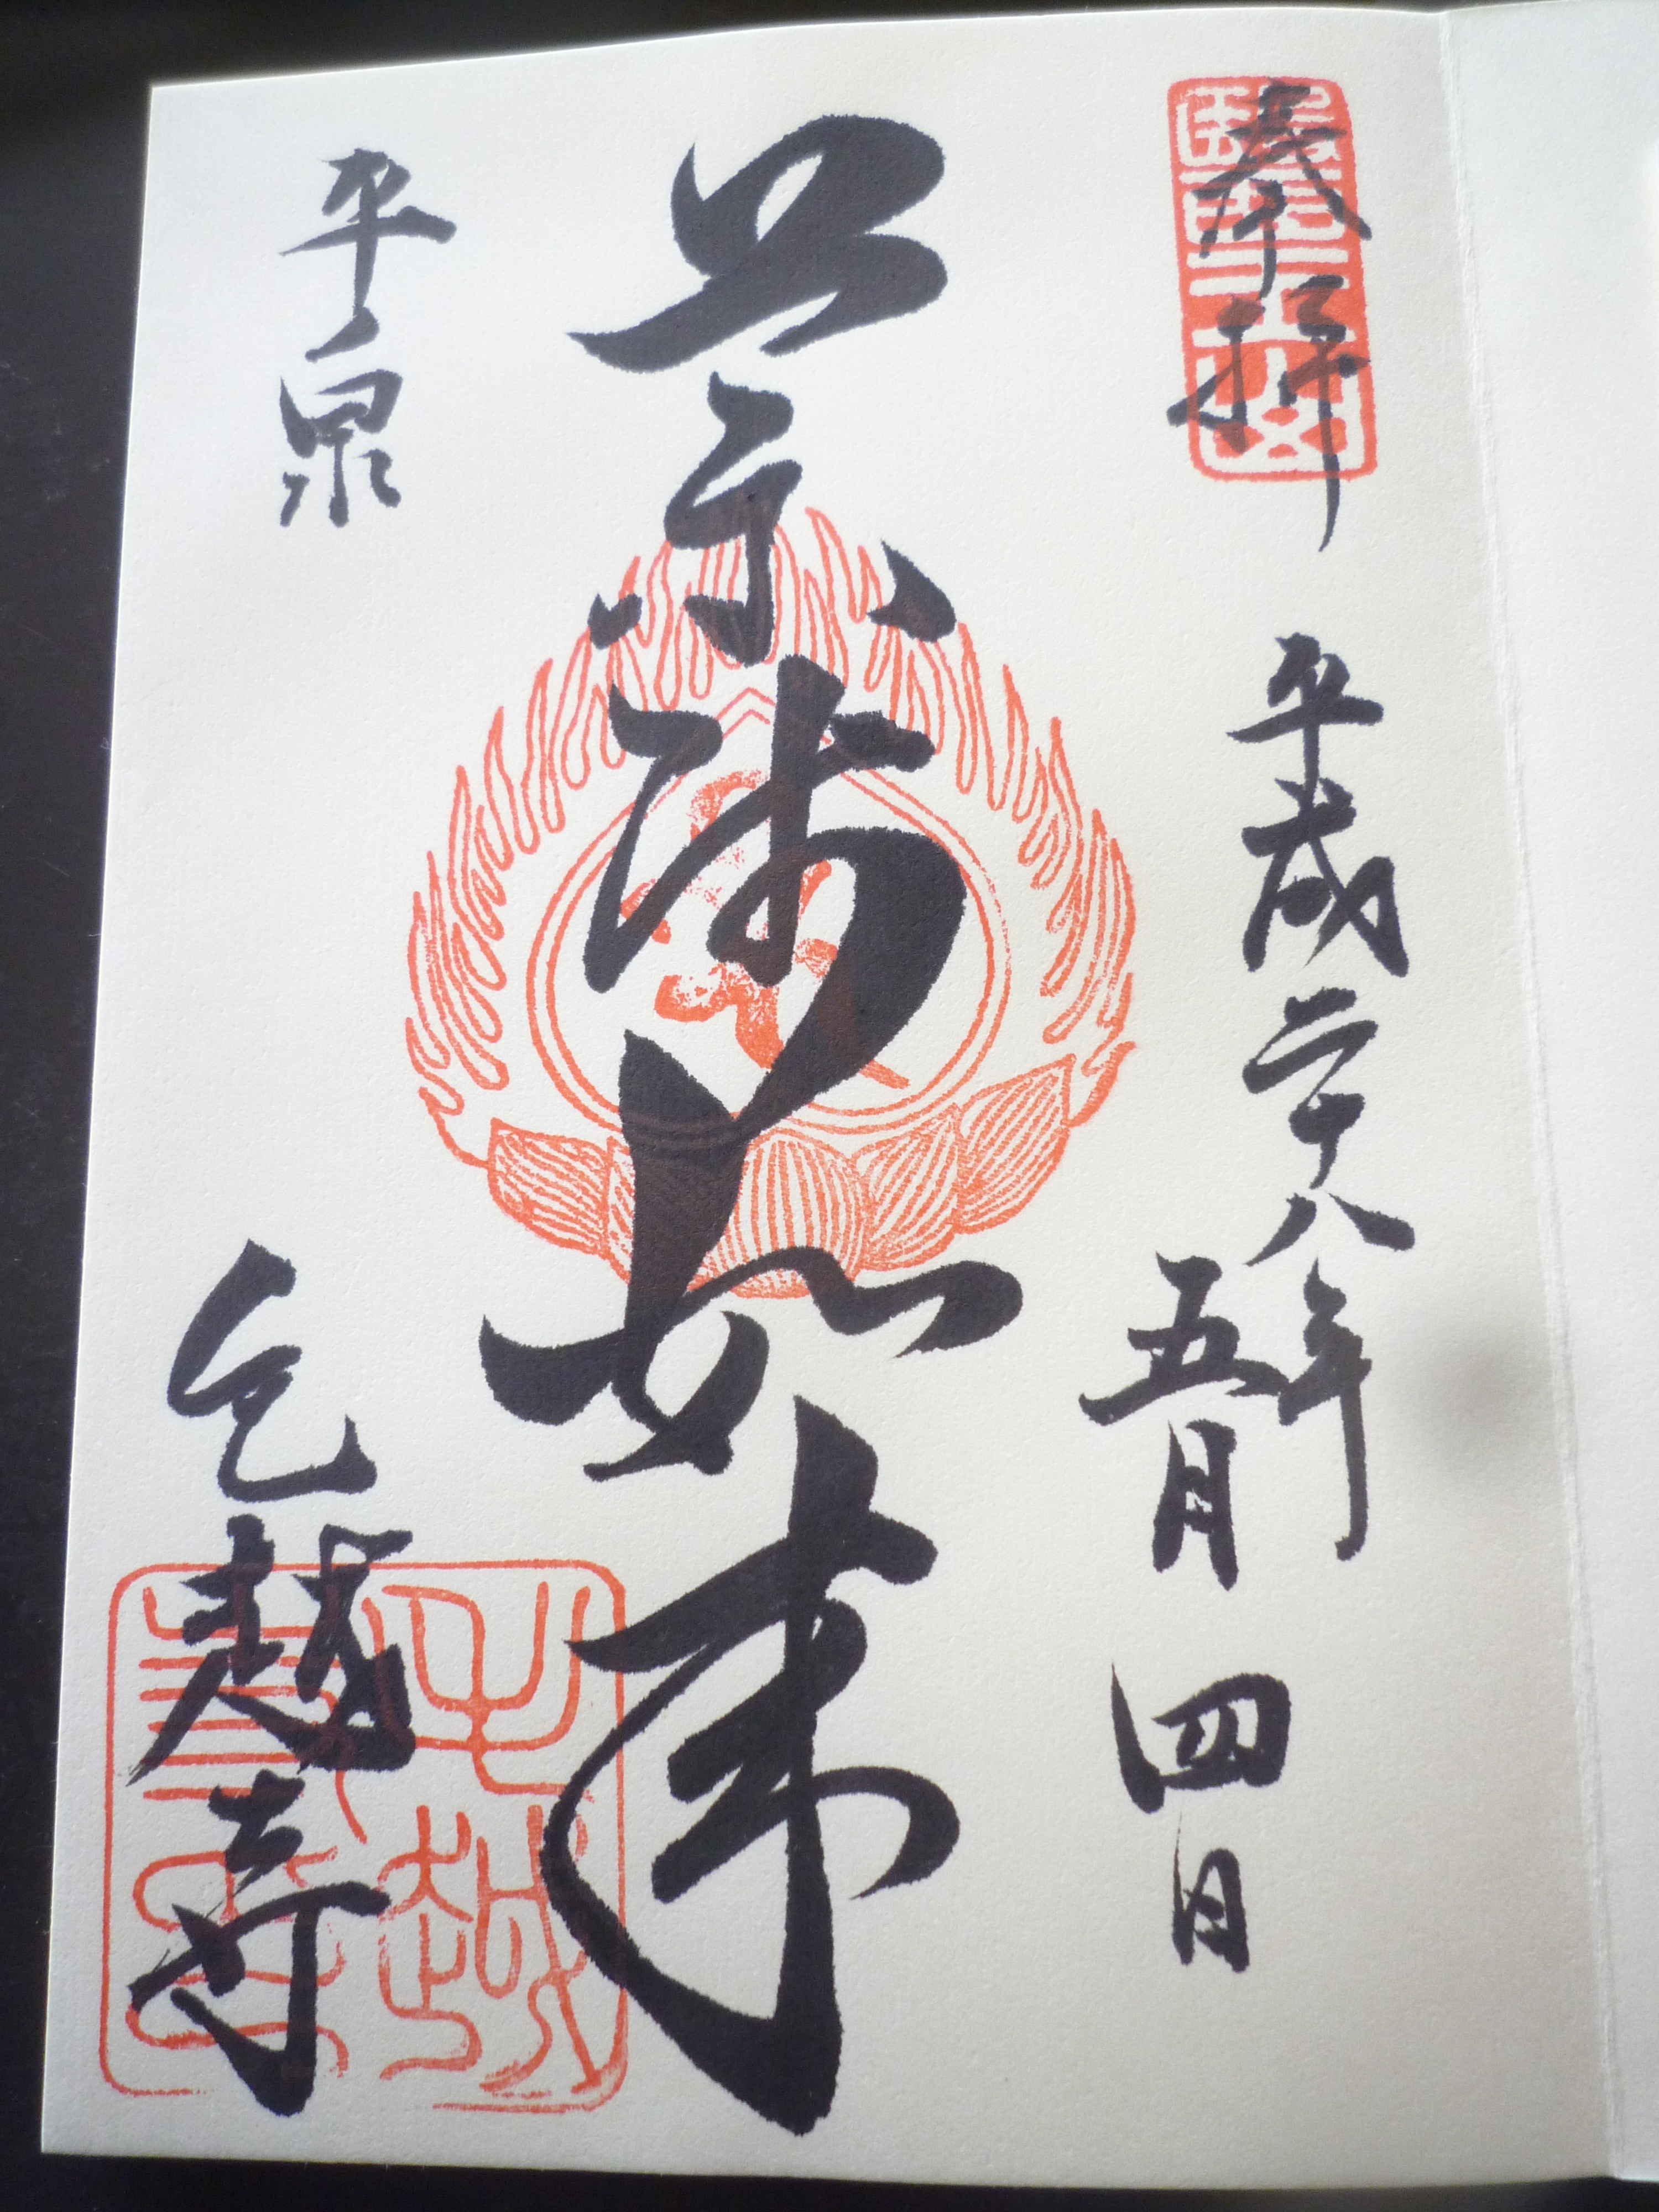 奉拝
平成二十八年
五月四日
薬師如来
平泉
毛越寺